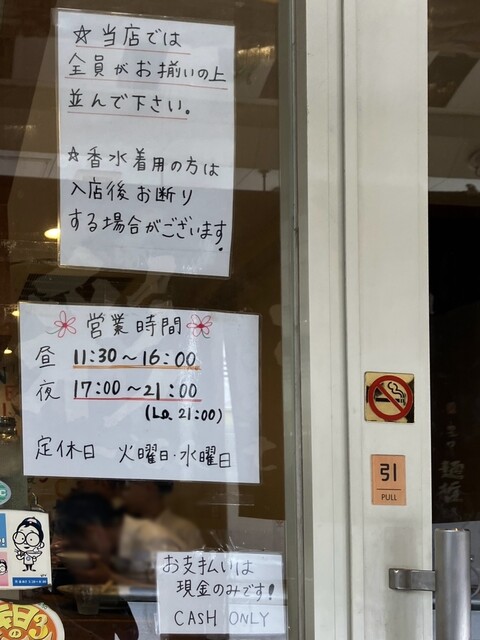 ☆当店では
全員がお揃いの上
並んで下さい。
☆香水着用の方は
入店後お断り
する場合がございます。
営業時間
昼 11:30～16:00
夜 17:00～21:00
(Lo. 21:00)
定休日 火曜日・水曜日
引
PULL
お支払いは
現金のみです!
CASH ONLY